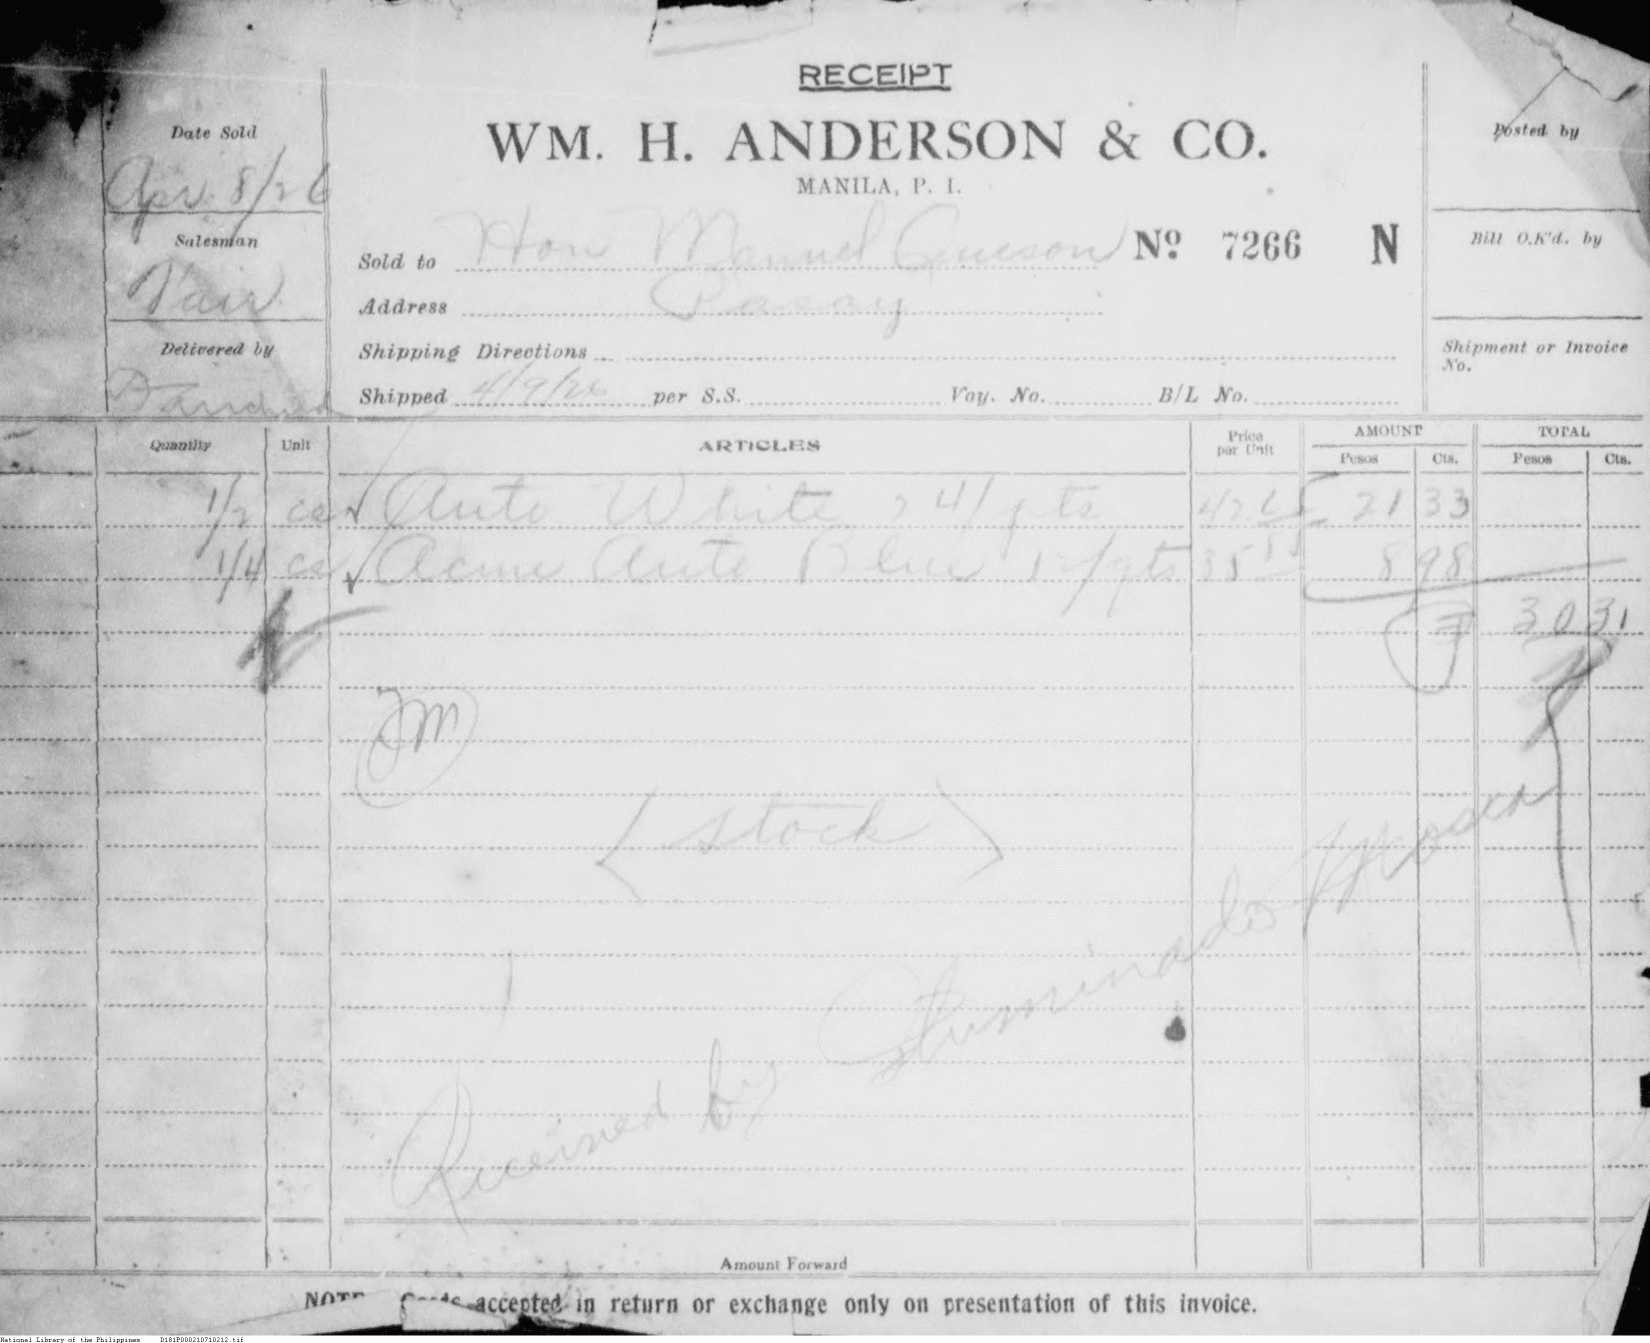 RECEIPT
WM. H. ANDERSON & CO.
MANILA, P. I.
Date Sold
Apr. 8/26
Salesman
Vair
Delivered by
Sold to Hon Manuel Queson
No 7266 N
Address Pasay
Shipping Directions
Shipped 4/9/26 per S.S. Voy. No. B/L No.
Posted by
Bill O.K'd. by
Shipment or Invoice No.
Quantity Unit ARTICLES Price per Unit AMOUNT TOTAL
Pesos Cts. Pesos Cts.
1/2 cs Auto White 24/ qts 42.65 21 33
1/4 cs Acme Auto Blue 12/qts 35 8 98
30 31
(stock)
Received by
Amount Forward
accepted in return or exchange only on presentation of this invoice.
National Library of the Philippines D181P000210710212.tif